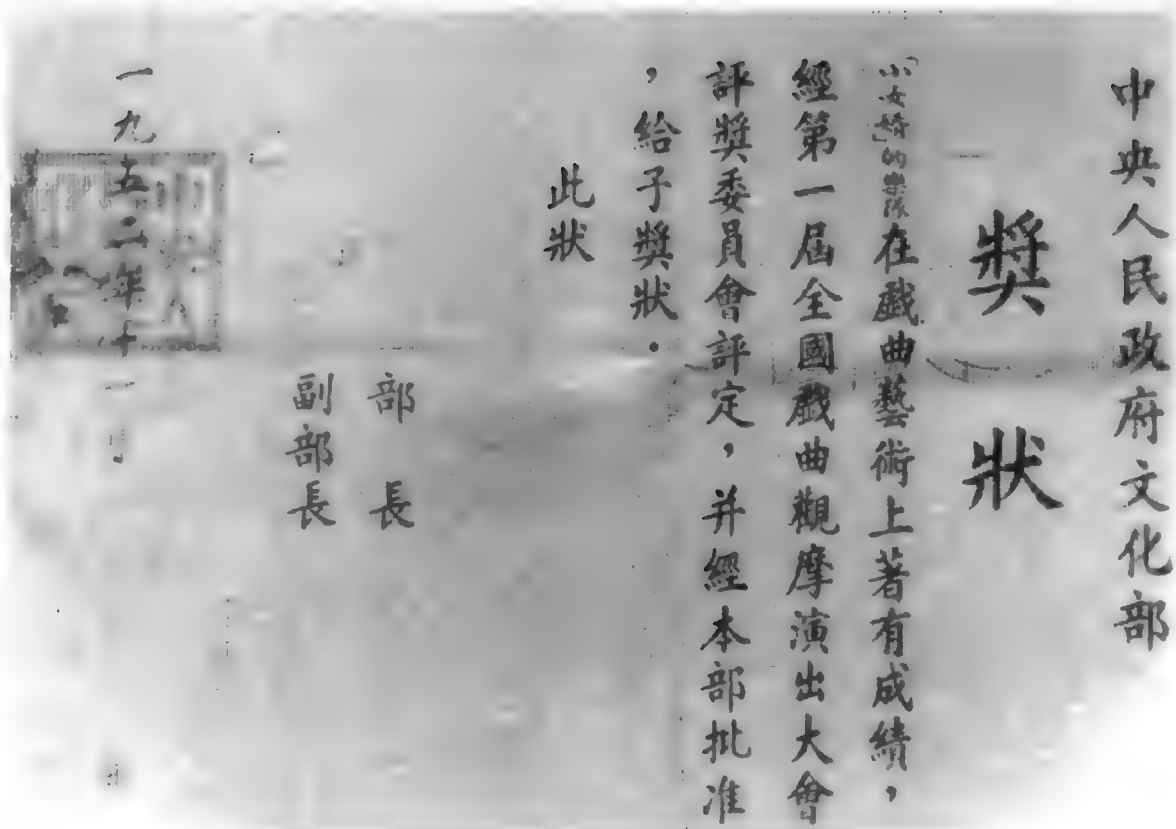 中央人民政府文化部
獎狀
「小女婿」的樂隊在戲曲藝術上著有成績，
經第一屆全國戲曲觀摩演出大會
評獎委員會評定，并經本部批准
，給予獎狀。
此狀
部長
副部長
一九五二年十一月